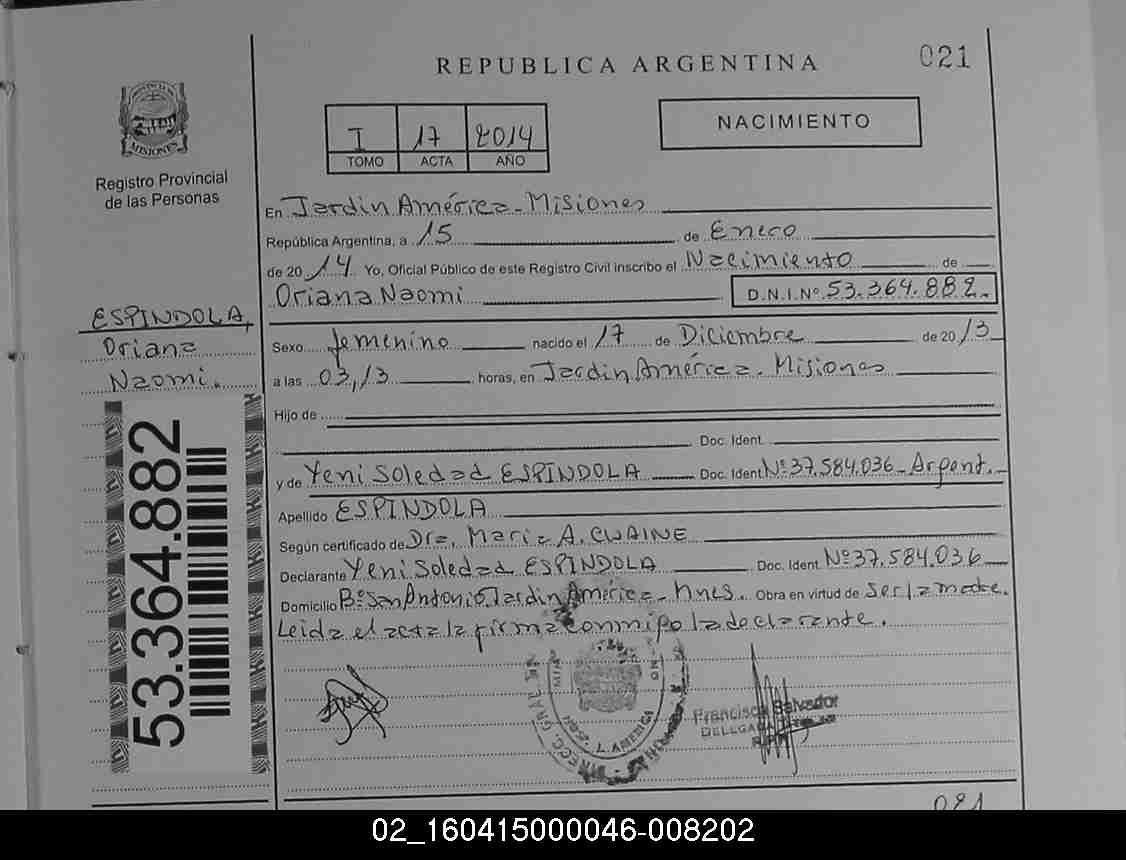 REPUBLICA ARGENTINA
021
PROVINCIA DE
MISIONES
Registro Provincial
de las Personas
I 17 2014
TOMO ACTA AÑO
NACIMIENTO
En Jardin América - Misiones
República Argentina, a 15 de Enero
de 2014 Yo, Oficial Público de este Registro Civil inscribo el Nacimiento de
Oriana Naomi D.N.I.Nº 53.364.882.-
ESPINDOLA,
Oriana
Naomi.
53.364.882
Sexo femenino nacido el 17 de Diciembre de 2013
a las 03,13 horas, en Jardin América - Misiones
Hijo de
Doc. Ident.
y de Yeni Soledad ESPINDOLA Doc. Ident. Nº 37.584.036 - Argent.
Apellido ESPINDOLA
Según certificado de Dra. Maria A. CWAINE
Declarante Yeni Soledad ESPINDOLA Doc. Ident. Nº 37.584.036
Domicilio Bº San Antonio, Jardin América - Mnes. Obra en virtud de ser la madre.
Leida el acta la firma conmigo la declarante.
J. AMERICA
Francisco Salvador
DELEGADA
021
02_160415000046-008202